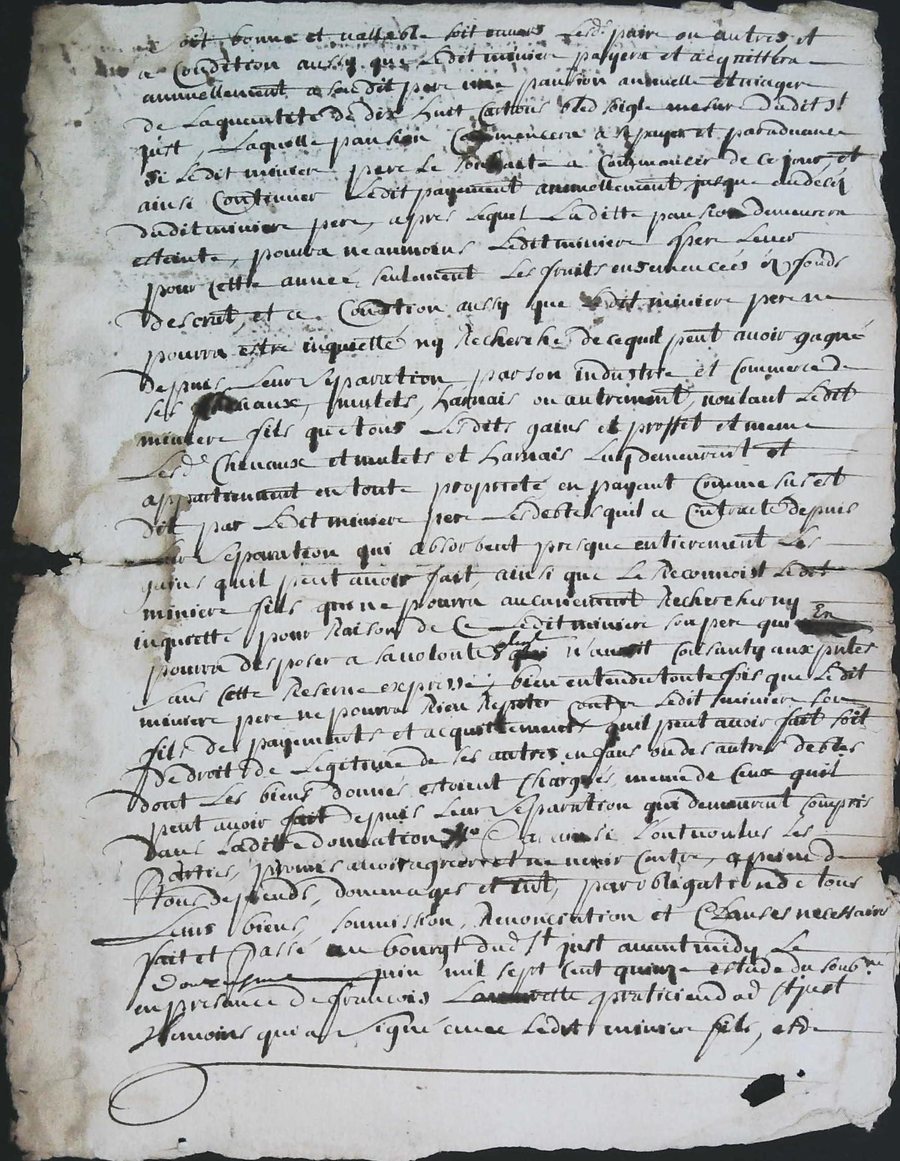 soit bonne et vallable soit envers sesd. pere ou autres et
a Condition aussy que Ledit miniere payera et acquittera
annuellement a sondit pere une pansion annuelle et viagere
de La quentité de dix huit Cartons bled soigle mesure dudit st
just, Laquelle pansion Commencera a payer et par advance
si Ledit miniere pere Le souhaite a Commancer de ce jour et
ainsi Continuer Ledit payement annuellement jusque au décéz
dudit miniere pere, apres Lequel Laditte pansion demeurera
esteinte, pourra neanmoins Ledit miniere pere Lever
pour cette année, seulement Les fruits ensemencées es fonds
descrit, et a Condition aussy que Ledit miniere pere ne
pourra estre inquietté ny Recherché de ce quil peut avoir gagné
depuis Leur separation par son industrie et Commerce de
ses chevaux, mulets, harnais ou autrement, voulant Ledit
miniere fils que tous Lesdits gains et proffit et meme
Lesd. Chevaux et mulets et harnais Luy demeurent et
appartiennent en toute proprieté en payant Comme sus est
dit par Ledit miniere pere Lesdebtes quil a Contracté depuis
Leur separation qui absorbent presque entierement Les
gains quil peut avoir fait, ainsi que Le Reconnoist Ledit
miniere fils qui ne pourra aucunement Rechercher ny
inquietter pour Raison de Ce Ledit miniere son pere qui En
pourra desposer a sa volonté n'auroit Consanty aux pntes
sans Cette Reserve expresse, bien entendu toute fois que Ledit
miniere pere ne pourra Rien Repeter Contre Ledit miniere son
fils de payements et acquittements quil peut avoir fait soit
de droits de Legitime de ses autres enfans ou des autres debtes
dont Les biens donnés estoient Chargés, meme de Ceux quil
peut avoir fait depuis Leur separation qui demeurent Compris
dans Ladite donation Ca ainsi L'ont voulus Les
Parties, promis avoir agreer et ne venir Contre, a peine de
tous depends, dommages et int, par obligation de tous
Leurs biens, soumission, Renonciation et Clauses necessaires
fait et Passé au bourgt dud. st just avant midy Le
douziesme juin mil sept cent quinze estude du soub.né
en presence de françois praticien dud St just
temoins qui a signé avec Ledit miniere fils, et de